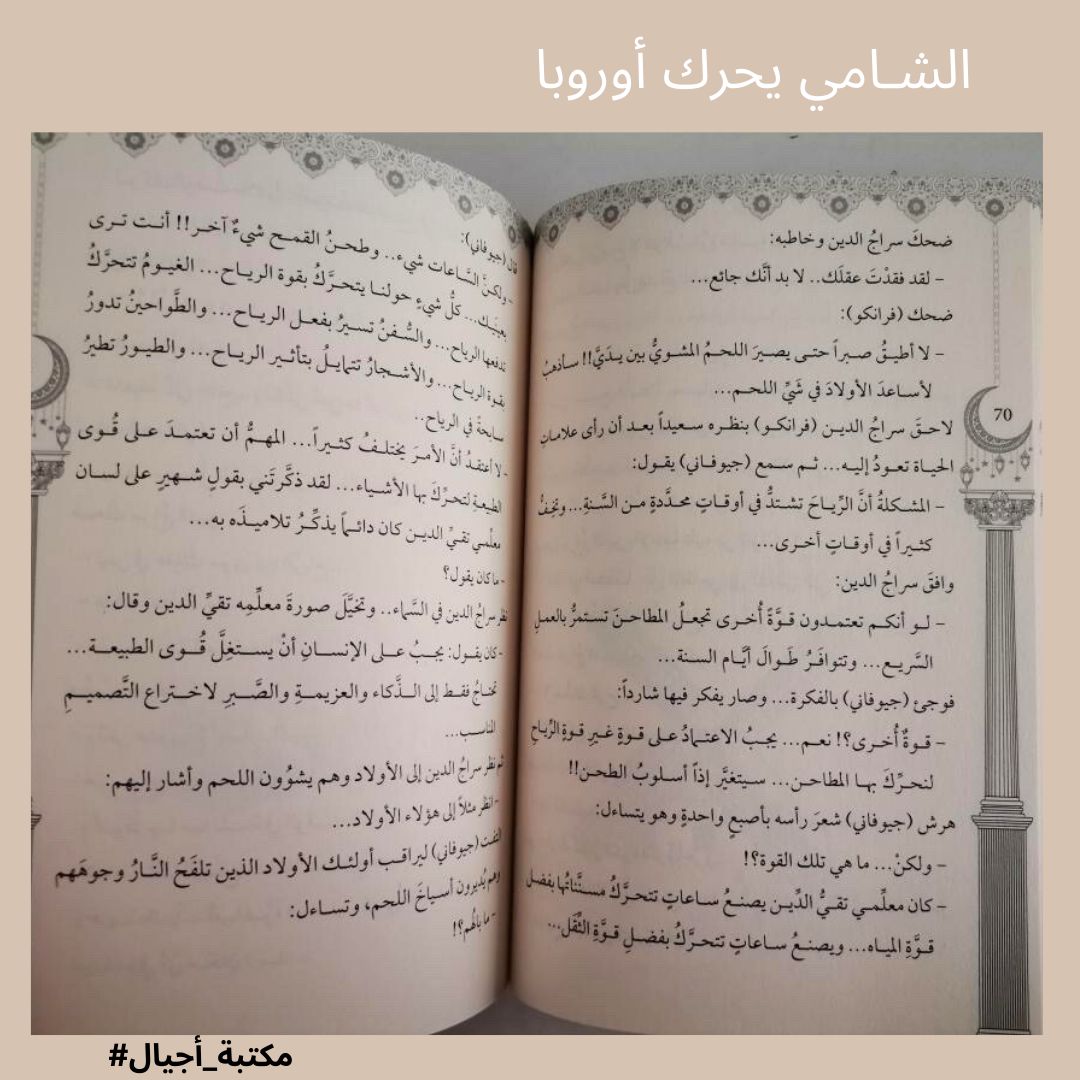 الشامي يحرك أوروبا
ضحكَ سراجُ الدين وخاطبه:
- لقد فقدْتَ عقلَك.. لا بد أنَّك جائع...
ضحك (فرانكو):
- لا أطيقُ صبراً حتى يصيرَ اللحمُ المشويُّ بين يدَيَّ!! سأذهبُ
لأساعدَ الأولادَ في شَيِّ اللحم...
لاحقَ سراجُ الدين (فرانكو) بنظره سعيداً بعد أن رأى علاماتِ
الحياة تعودُ إليه... ثم سمع (جيوفاني) يقول:
- المشكلةُ أنَّ الرِّياحَ تشتدُّ في أوقاتٍ محدَّدةٍ من السَّنةِ... وتخِفُّ
كثيراً في أوقاتٍ أخرى...
وافقَ سراجُ الدين:
- لو أنكم تعتمدون قوَّةً أُخرى تجعلُ المطاحنَ تستمرُّ بالعملِ
السَّريع... وتتوافَرُ طَوالَ أيَّام السنة...
فوجئ (جيوفاني) بالفكرة... وصار يفكر فيها شارداً:
- قوةٌ أُخرى؟! نعم... يجبُ الاعتمادُ على قوةٍ غيرِ قوةِ الرِّياحِ
لنحرِّكَ بها المطاحن... سيتغيَّر إذاً أسلوبُ الطحن!!
هرش (جيوفاني) شعرَ رأسه بأصبعٍ واحدةٍ وهو يتساءل:
- ولكنْ... ما هي تلك القوة؟!
- كان معلِّمي تقيُّ الدِّين يصنعُ ساعاتٍ تتحرَّكُ مسنَّناتُها بفضل
قوَّةِ المياه... ويصنعُ ساعاتٍ تتحرَّكُ بفضلِ قوَّةِ الثِّقَل...
70
قال (جيوفاني):
- ولكنَّ السَّاعات شيء.. وطحنُ القمح شيءٌ آخر!! أنت ترى
بعينَيك... كلُّ شيءٍ حولنا يتحرَّكُ بقوة الرياح... الغيومُ تتحرَّكُ
تدفعها الرياح... والسُّفنُ تسيرُ بفعل الرياح... والطَّواحينُ تدورُ
بقوة الرياح... والأشجارُ تتمايلُ بتأثير الرياح... والطيورُ تطيرُ
سابحةً في الرياح..
- لا أعتقدُ أنَّ الأمرَ يختلفُ كثيراً... المهمُّ أن تعتمدَ على قُوى
الطبيعةِ لتحرِّكَ بها الأشياء... لقد ذكَّرتَني بقولٍ شهيرٍ على لسان
معلِّمي تقيِّ الدين كان دائماً يذكِّرُ تلاميذَه به...
- ما كان يقول؟
نظر سراجُ الدين في السَّماء.. وتخيَّلَ صورةَ معلِّمِه تقيِّ الدين وقال:
- كان يقول: يجبُ على الإنسانِ أنْ يستغِلَّ قُوى الطبيعة...
تحتاجُ فقط إلى الذَّكاء والعزيمةِ والصَّبرِ لاختراع التَّصميمِ
المناسب...
ثم نظر سراجُ الدين إلى الأولاد وهم يشوُون اللحم وأشار إليهم:
- انظر مثلاً إلى هؤلاء الأولاد...
التفت (جيوفاني) ليراقب أولئك الأولاد الذين تلفَحُ النَّارُ وجوهَهم
وهم يُديرون أسياخَ اللحم، وتساءل:
- ما بالُهم؟!
#مكتبة_أجيال